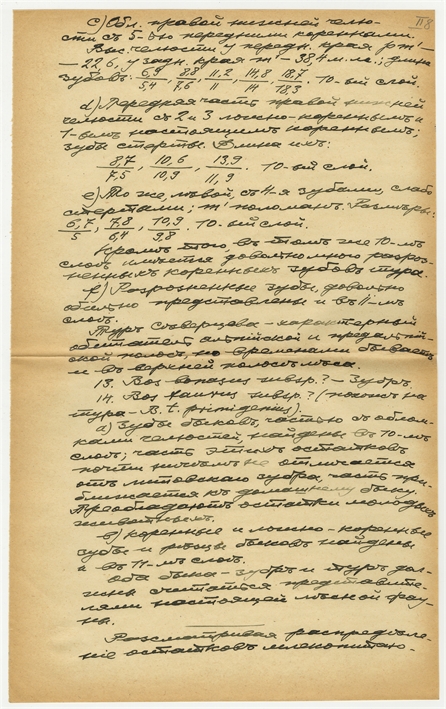 118
c) Обл. правой нижней челю-
сти съ 5-ью передними коренными.
Выс. челюсти у передн. края p m' -
- 22,6, у задн. края m³ - 38,4 м.м.; длина
зубовъ: 6,9/5,4, 8,8/7,6, 11,2/11, 14,8/14, 18,7/18,3. 10-ый слой.
d) Передняя часть правой нижней
челюсти съ 2 и 3 ложно-коренными и
1-ымъ настоящимъ кореннымъ;
зубы стерты. Длина ихъ:
8,7/7,5, 10,6/10,9, 13,9/11,9. 10-ый слой.
e) То же, лѣвой, съ 4-я зубами, слабо
стертыми; m' поломанъ. Размѣры:
6,7/5, 7,8/6,4, 10,9/9,8. 10-ый слой.
Кромѣ того, въ томъ же 10-мъ
слоѣ имѣется довольно много разроз-
ненныхъ коренныхъ зубовъ тура.
f) Разрозненные зубы, довольно
обильно представлены и въ 11-мъ
слоѣ.
Туръ Сѣверцева - характерный
обитатель альпійской и предальпій-
ской полосъ, но временами бываетъ
и въ верхней полосѣ лѣса.
13. Bos bonasus subsp.? - Зубръ.
14. Bos taurus subsp.? (похожъ на
тура - B. t. primigenius).
a) Зубы быковъ, частью съ облом-
ками челюстей, найдены въ 10-мъ
слоѣ; часть этихъ остатковъ
почти ничѣмъ не отличается
отъ литовскаго зубра, часть при-
ближается къ домашнему быку.
Преобладаютъ остатки молодыхъ
животныхъ.
b) Коренные и ложно-коренные
зубы и рѣзцы быковъ найдены
и въ 11-мъ слоѣ.
Оба быка - зубръ и туръ дол-
жны считаться представите-
лями настоящей лѣсной фау-
ны.
Разсматривая распредѣле-
ніе остатковъ млекопитаю-